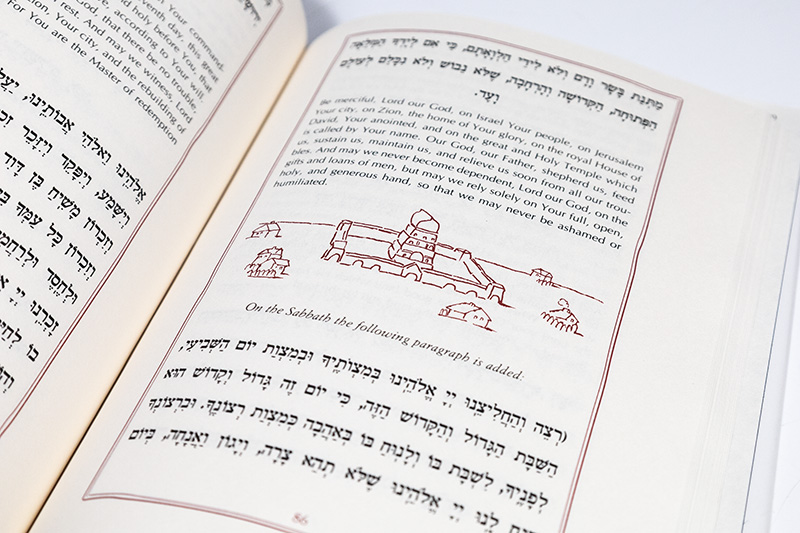 Your command.
day, this great
holy before You, that
according to Your will.
God, that there be no trouble,
rest. And may we witness, Lord
Your city, and the rebuilding of
For You are the Master of redemption
אֱלֹהֵינוּ וֵאלֹהֵי אֲבוֹתֵינוּ,
וְיִשָּׁמַע, וְיִפָּקֵד וְיִזָּכֵר
וְזִכְרוֹן מָשִׁיחַ בֶּן דָּוִד
וְזִכְרוֹן כָּל עַמְּךָ
וּלְחֶסֶד
זָכְרֵנוּ יְיָ
בוֹ
מַתְּנַת בָּשָׂר וָדָם וְלֹא לִידֵי הַלְוָאָתָם, כִּי אִם לְיָדְךָ הַמְּלֵאָה
הַפְּתוּחָה, הַקְּדוֹשָׁה וְהָרְחָבָה, שֶׁלֹּא נֵבוֹשׁ וְלֹא נִכָּלֵם לְעוֹלָם
וָעֶד.
Be merciful, Lord our God, on Israel Your people, on Jerusalem
Your city, on Zion, the home of Your glory, on the royal House of
David, Your anointed, and on the great and Holy Temple which
is called by Your name. Our God, our Father, shepherd us, feed
us, sustain us, maintain us, and relieve us soon from all our trou-
bles. And may we never become dependent, Lord our God, on the
gifts and loans of men, but may we rely solely on Your full, open,
holy, and generous hand, so that we may never be ashamed or
humiliated.
On the Sabbath the following paragraph is added:
(רְצֵה וְהַחֲלִיצֵנוּ יְיָ אֱלֹהֵינוּ בְּמִצְוֹתֶיךָ וּבְמִצְוַת יוֹם הַשְּׁבִיעִי,
הַשַּׁבָּת הַגָּדוֹל וְהַקָּדוֹשׁ הַזֶּה, כִּי יוֹם זֶה גָּדוֹל וְקָדוֹשׁ הוּא
לְפָנֶיךָ, לִשְׁבָּת בּוֹ וְלָנוּחַ בּוֹ בְּאַהֲבָה כְּמִצְוַת רְצוֹנֶךָ. וּבִרְצוֹנְךָ
לָנוּ יְיָ אֱלֹהֵינוּ שֶׁלֹּא תְהֵא צָרָה, וְיָגוֹן וַאֲנָחָה, בְּיוֹם
86